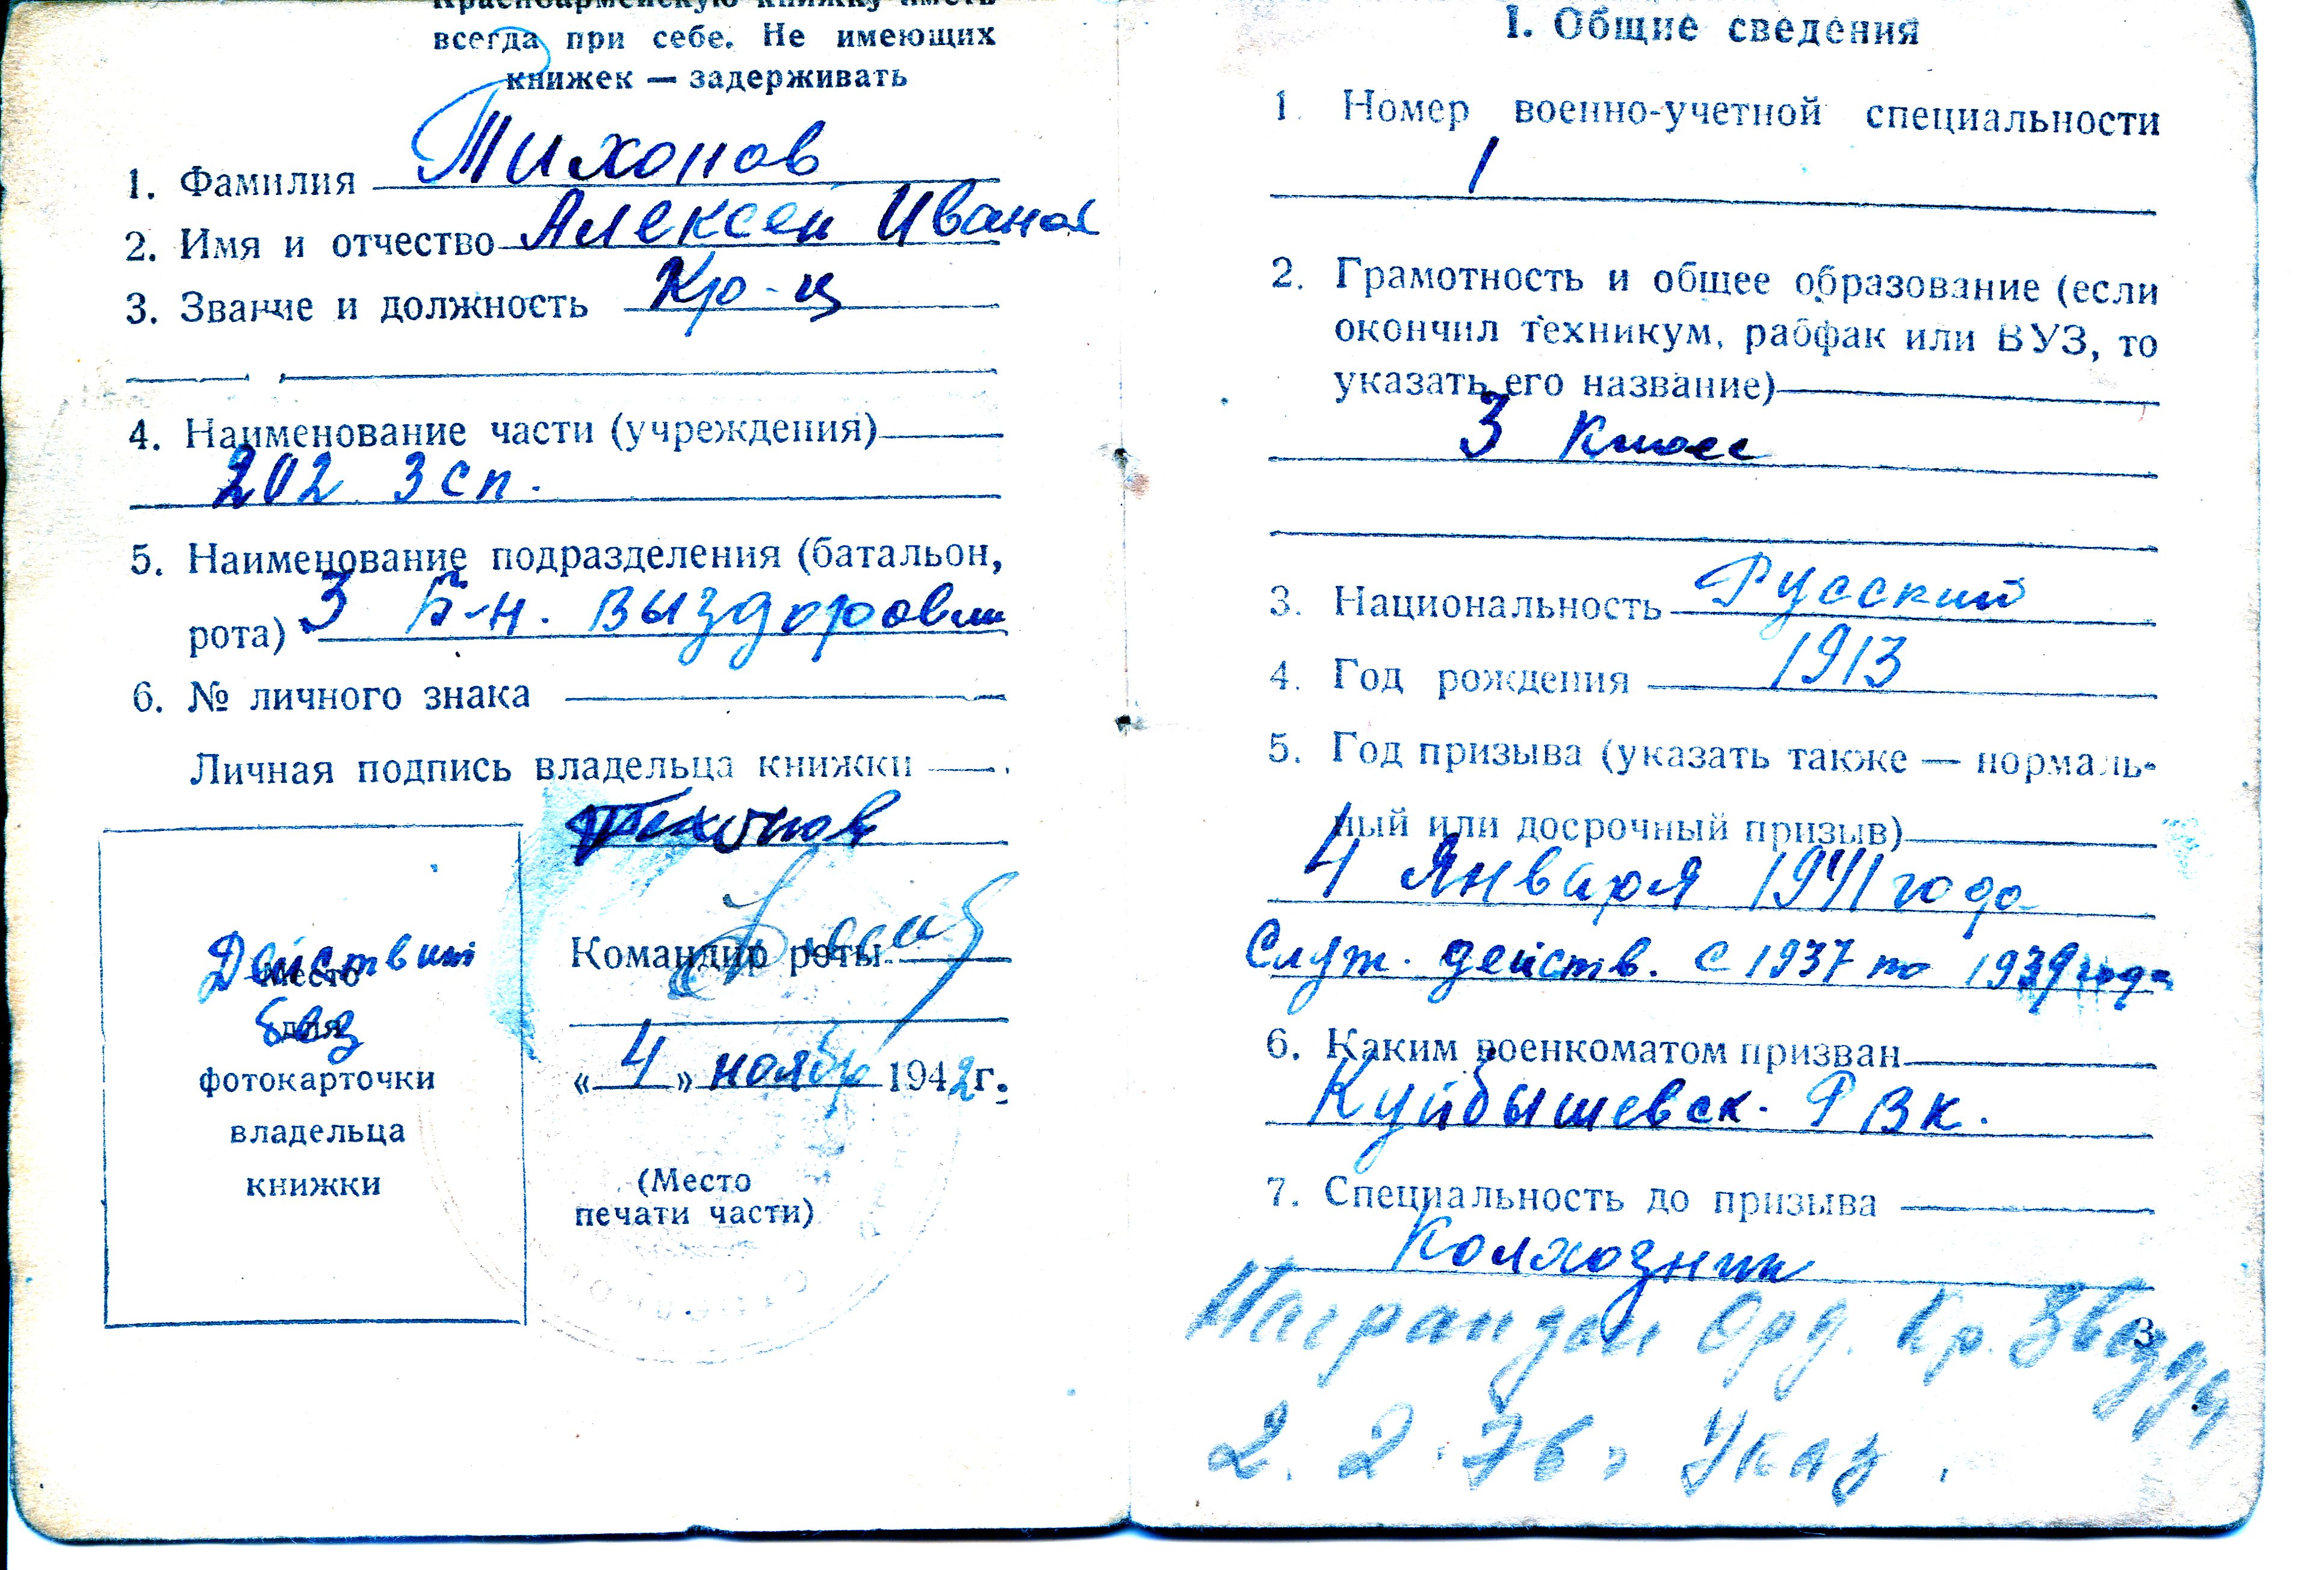 Красноармейскую книжку иметь
всегда при себе. Не имеющих
книжек — задерживать
1. Фамилия Тихонов
2. Имя и отчество Алексей Иванов
3. Звание и должность Кр-ц
4. Наименование части (учреждения)
202 зсп.
5. Наименование подразделения (батальон,
рота) 3 б-н. выздоровли
6. № личного знака
Личная подпись владельца книжки
Тихонов
Действит
без
Место
для
фотокарточки
владельца
книжки
Командир роты
« 4 » ноябр 1942 г.
(Место
печати части)
I. Общие сведения
1. Номер военно-учетной специальности
1
2. Грамотность и общее образование (если
окончил техникум, рабфак или ВУЗ, то
указать его название)
3 класс
3. Национальность Русский
4. Год рождения 1913
5. Год призыва (указать также — нормаль-
ный или досрочный призыв)
4 Января 1941 года
Служ. действ. с 1937 по 1939 года
6. Каким военкоматом призван
Куйбышевск. РВК.
7. Специальность до призыва
Колхозник
Награжден Орд. Кр. Звезды
3
2. 2. Указ.